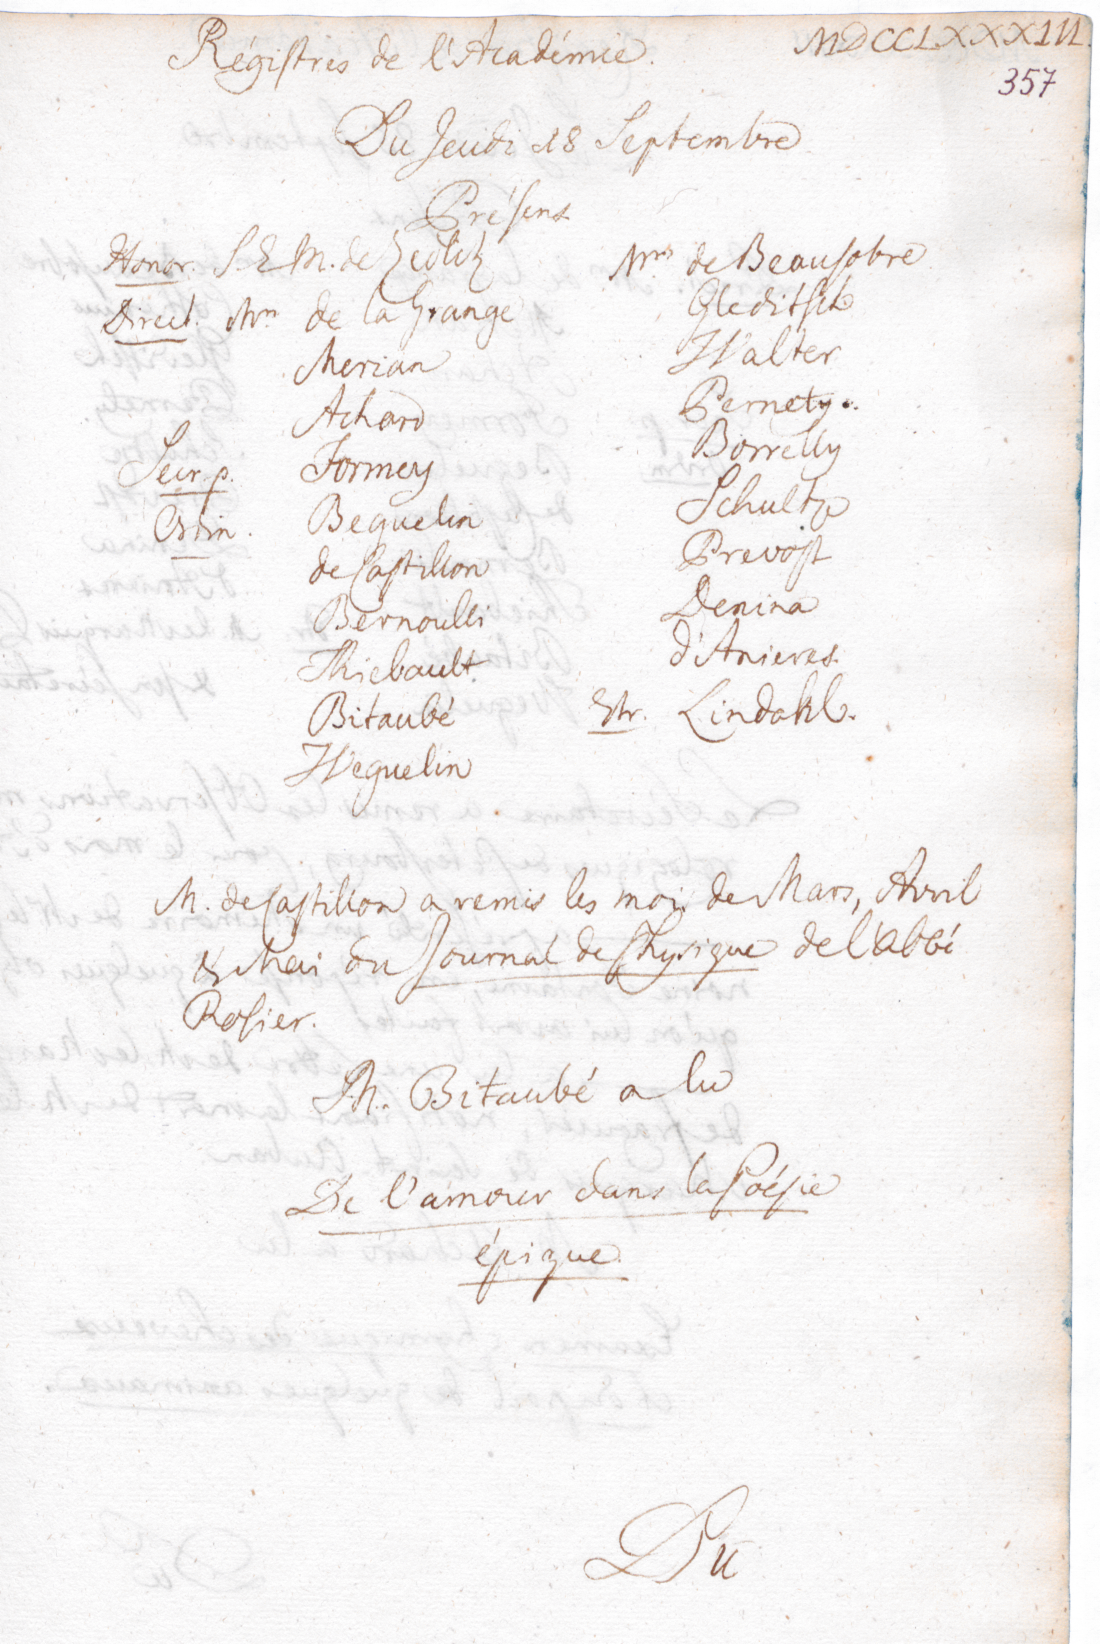 Régistres de l'Académie.
MDCCLXXXIII.
357
Du Jeudi 18 Septembre
Présens
Honor. S. E. M. de Zedlitz
Direct. Mrs de la Grange
Merian
Achard
Secr. p. Formey
Ordin. Beguelin
de Castillon
Bernoulli
Thiebault
Bitaubé
Weguelin
Mrs de Beausobre
Gleditsch
Walter
Pernety.
Borrelly
Schultz
Prevost
Denina
d'Anieres
Etr. Lindahl.
M. de Castillon a remis les mois de Mars, Avril
& Mai du Journal de Physique de l'Abbé
Rosier.
M. Bitaubé a lu
De l'amour dans la Poésie
épique.
Du